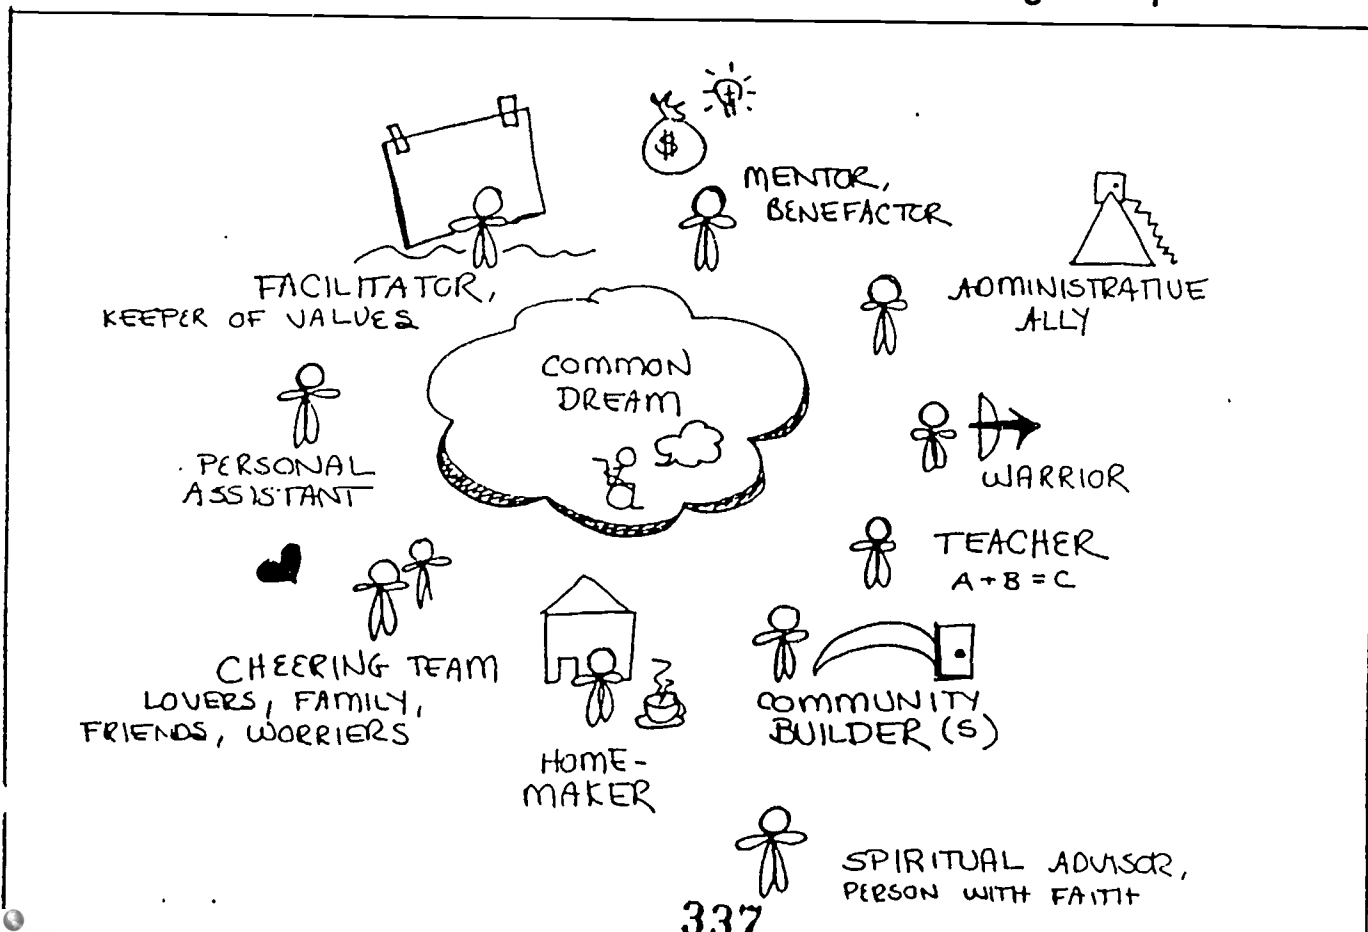 $
MENTOR,
BENEFACTOR
FACILITATOR,
KEEPER OF VALUES
ADMINISTRATIVE
ALLY
COMMON
DREAM
PERSONAL
ASSISTANT
WARRIOR
TEACHER
A + B = C
CHEERING TEAM
LOVERS, FAMILY,
FRIENDS, WORRIERS
COMMUNITY
BUILDER (S)
HOME-
MAKER
SPIRITUAL ADVISOR,
PERSON WITH FAITH
337